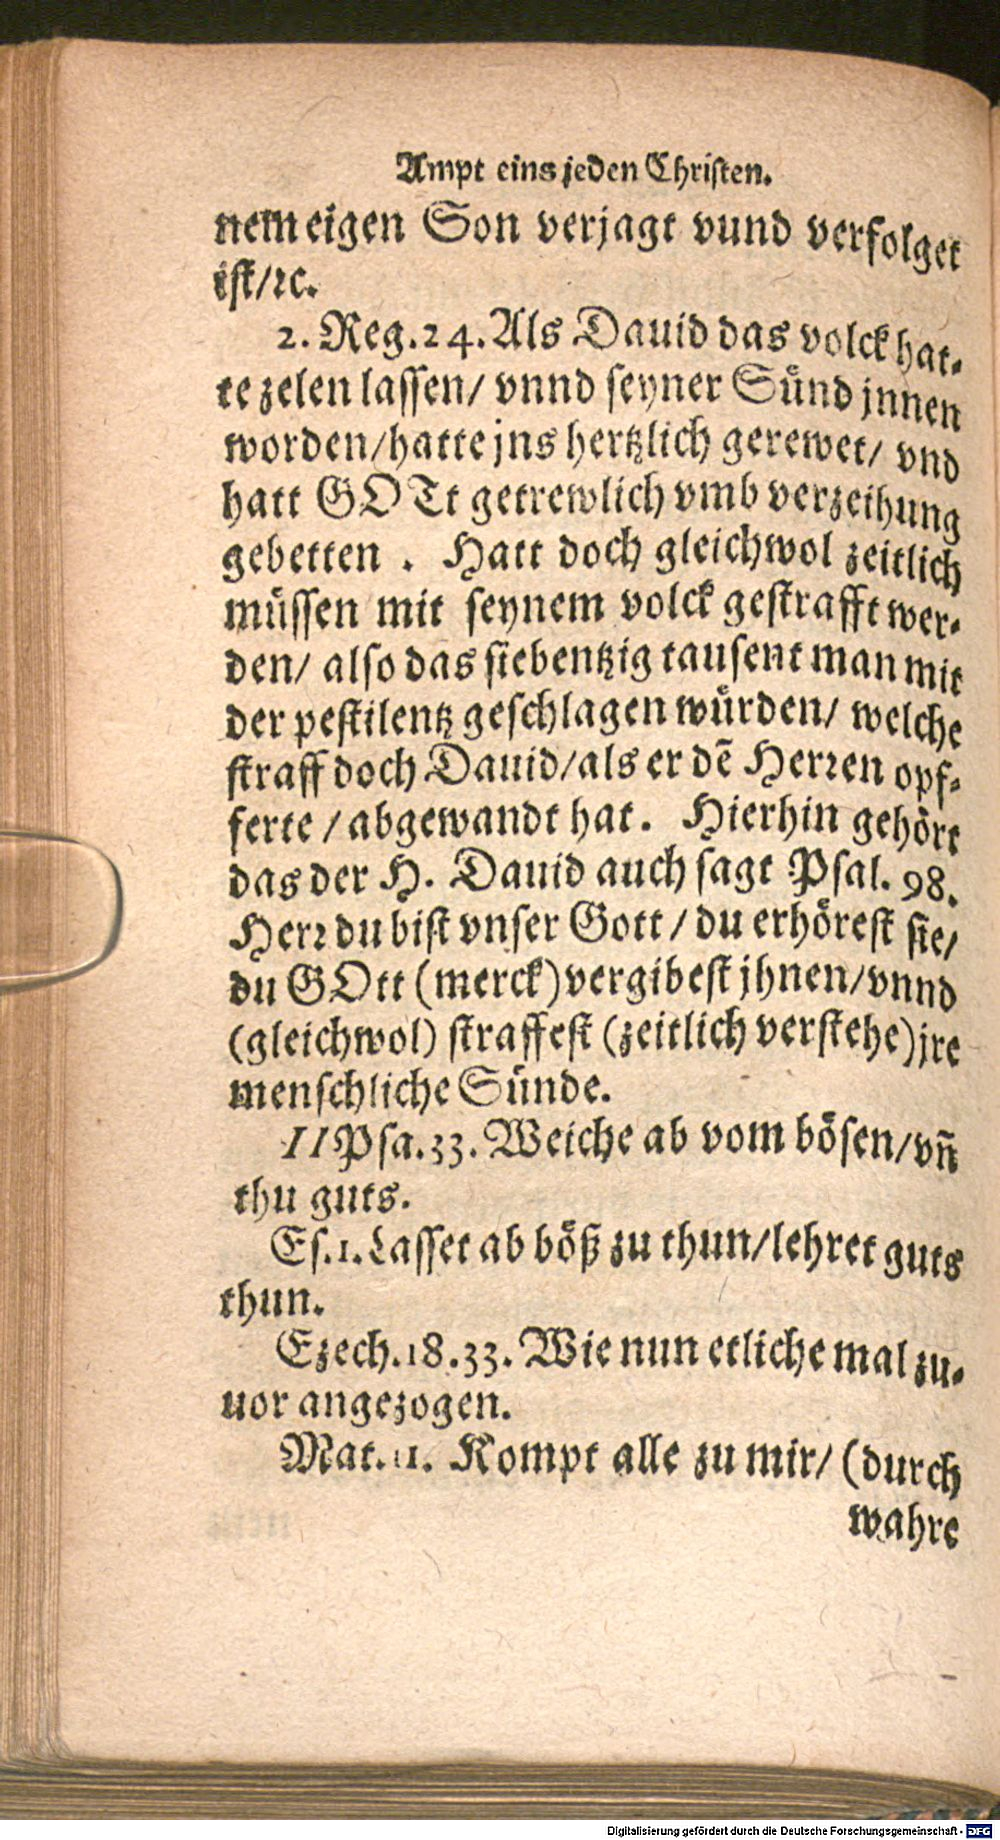 Ampt eins jeden Christen.
nem eigen Son verjagt vund verfolget
ist/ꝛc.
2. Reg. 24. Als Dauid das volck hat-
te zelen lassen/ vnnd seyner Sünd jnnen
worden/hatte jns hertzlich gerewet/ vnd
hatt GOTt getrewlich vmb verzeihung
gebetten . Hatt doch gleichwol zeitlich
müssen mit seynem volck gestrafft wer-
den/ also das siebentzig tausent man mit
der pestilentz geschlagen würden/ welche
straff doch Dauid/als er dē Herꝛen opf-
ferte /abgewandt hat. Hierhin gehört
das der H. Dauid auch sagt Psal. 98.
Herꝛ du bist vnser Gott/ du erhörest sie/
du GOtt (merck) vergibest jhnen/vnnd
(gleichwol) straffest (zeitlich verstehe) jre
menschliche Sünde.
II Psa. 33. Weiche ab vom bösen/vñ
thu guts.
Es. 1. Lasset ab böß zu thun/lehret guts
thun.
Ezech. 18. 33. Wie nun etliche mal zu-
uor angezogen.
Mat. 11. Kompt alle zu mir/ (durch
wahre
Digitalisierung gefördert durch die Deutsche Forschungsgemeinschaft - DFG